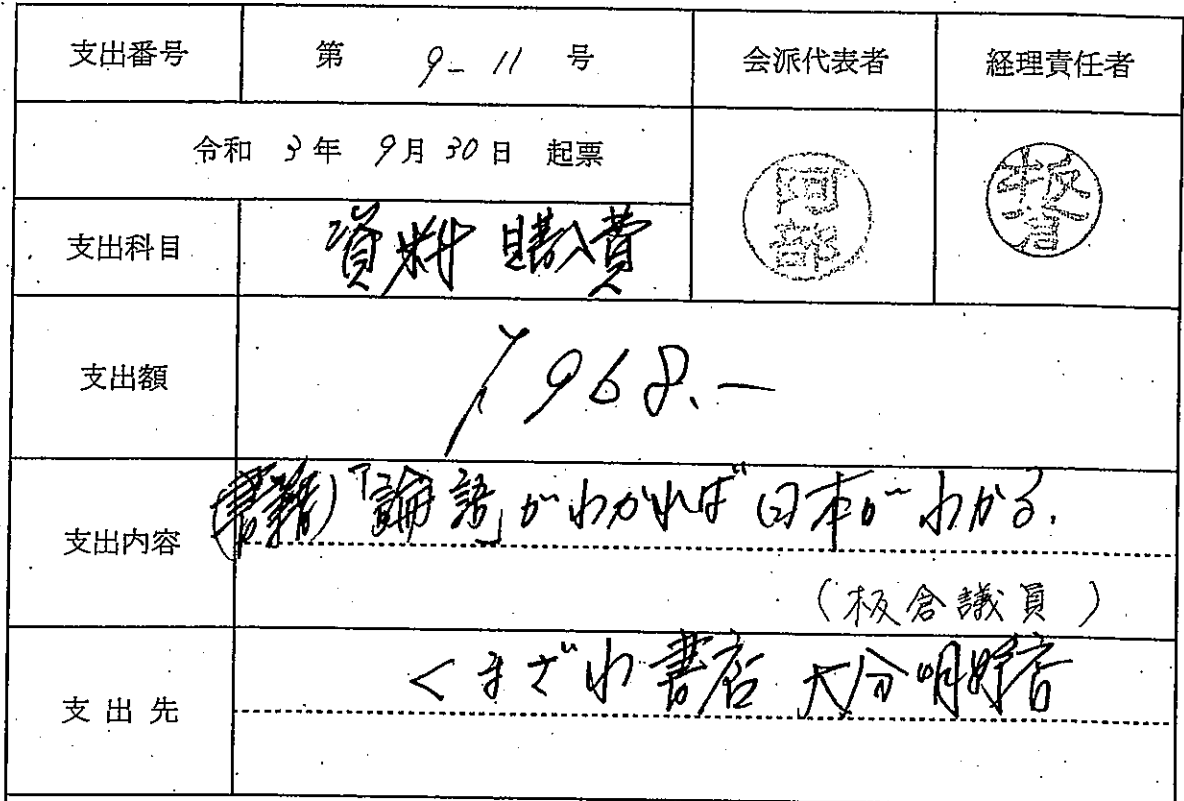 支出番号 第 9-11 号 会派代表者 経理責任者
令和 3年 9月 30日 起票
阿部
板倉
支出科目 資料購入費
支出額 ¥968.-
支出内容 (書籍)「論語」がわかれば日本がわかる.
(板倉議員)
支出先 くまざわ書店 大分明野店